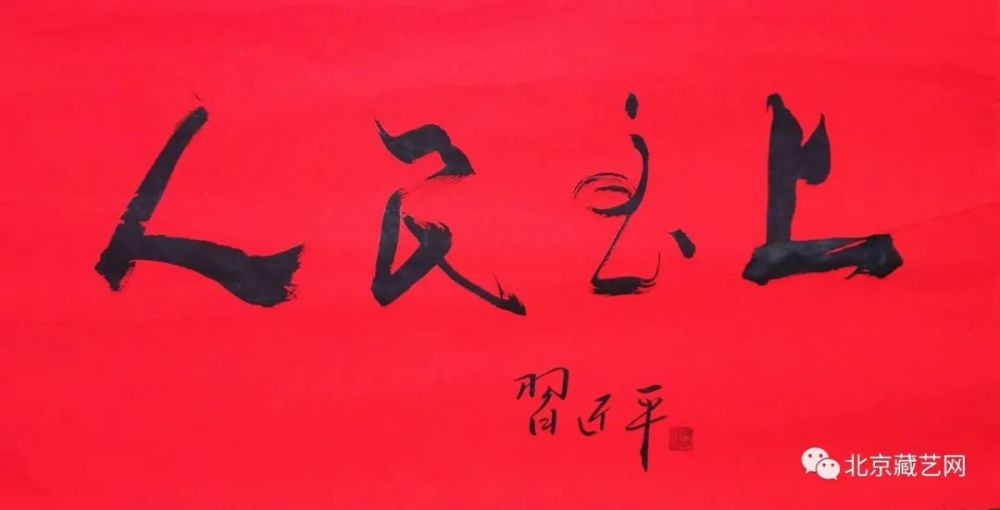 人民至上
習近平
北京藏艺网